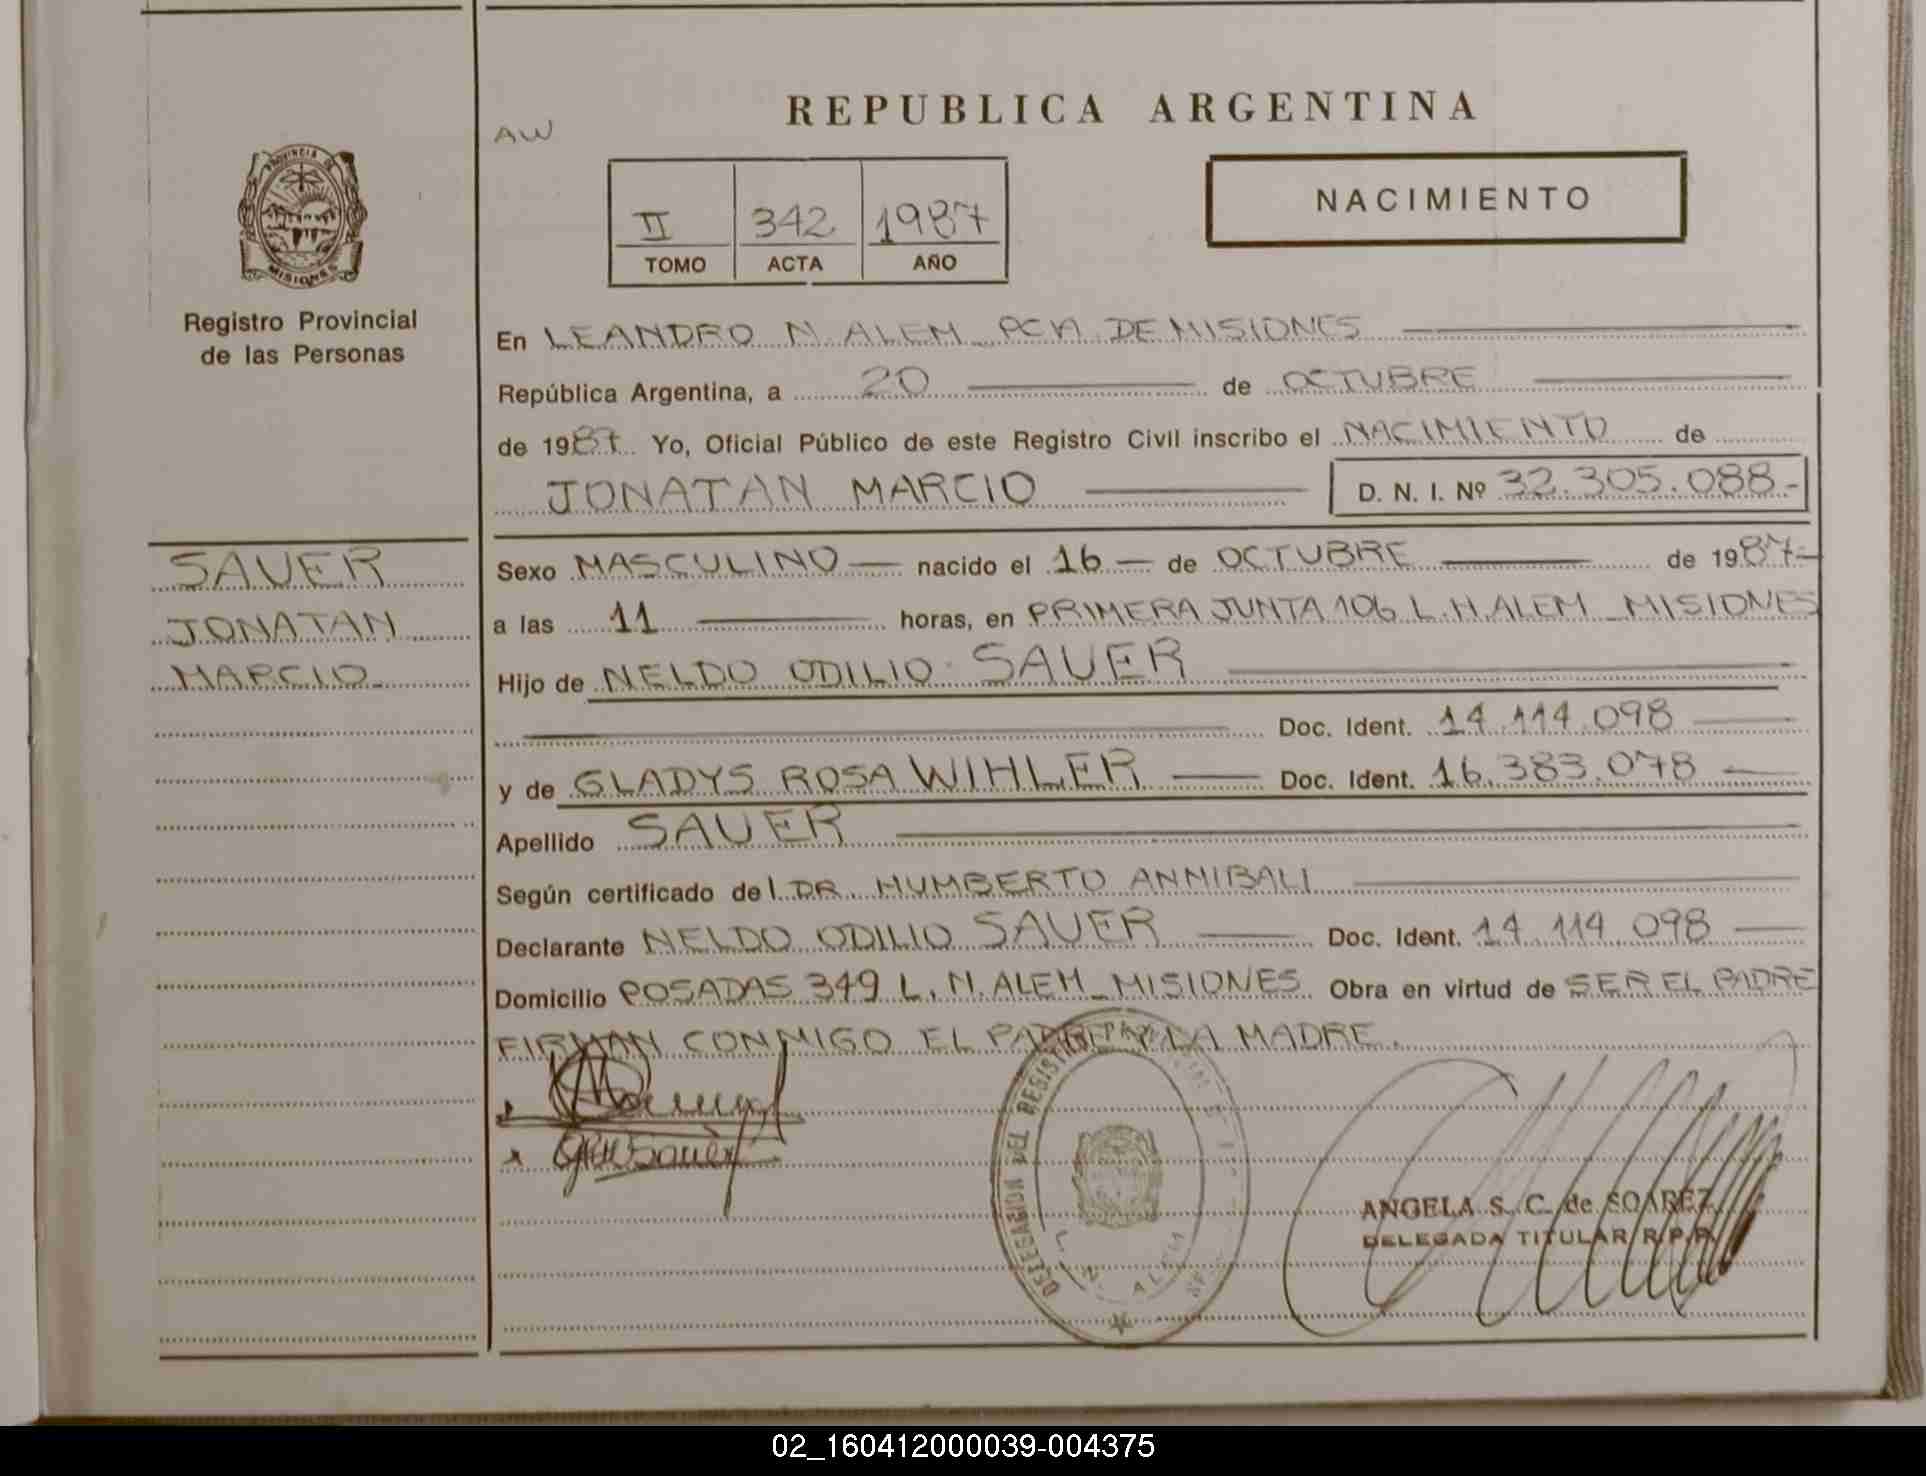 REPUBLICA ARGENTINA
AW
PROVINCIA DE
MISIONES
Registro Provincial
de las Personas
II 342 1987
TOMO ACTA AÑO
NACIMIENTO
En LEANDRO N. ALEM PCIA DE MISIONES
República Argentina, a 20 de OCTUBRE
de 1987 Yo, Oficial Público de este Registro Civil inscribo el NACIMIENTO de
JONATAN MARCIO D. N. I. Nº 32.305.088-
SAUER
JONATAN
MARCIO
Sexo MASCULINO nacido el 16 de OCTUBRE de 1987-
a las 11 horas, en PRIMERA JUNTA 106 L.N.ALEM_MISIONES
Hijo de NELDO ODILIO SAUER
Doc. Ident. 14.114.098
y de GLADYS ROSA WIHLER Doc. Ident. 16.383.078
Apellido SAUER
Según certificado del DR. HUMBERTO ANNIBALI
Declarante NELDO ODILIO SAUER Doc. Ident. 14.114.098
Domicilio POSADAS 349 L. N. ALEM_MISIONES Obra en virtud de SER EL PADRE
FIRMAN CONMIGO EL PADRE Y LA MADRE.
DELEGACION DEL
L. N. ALEM
ANGELA S. C. de SOAREZ
DELEGADA TITULAR R.P.P.
02_160412000039-004375